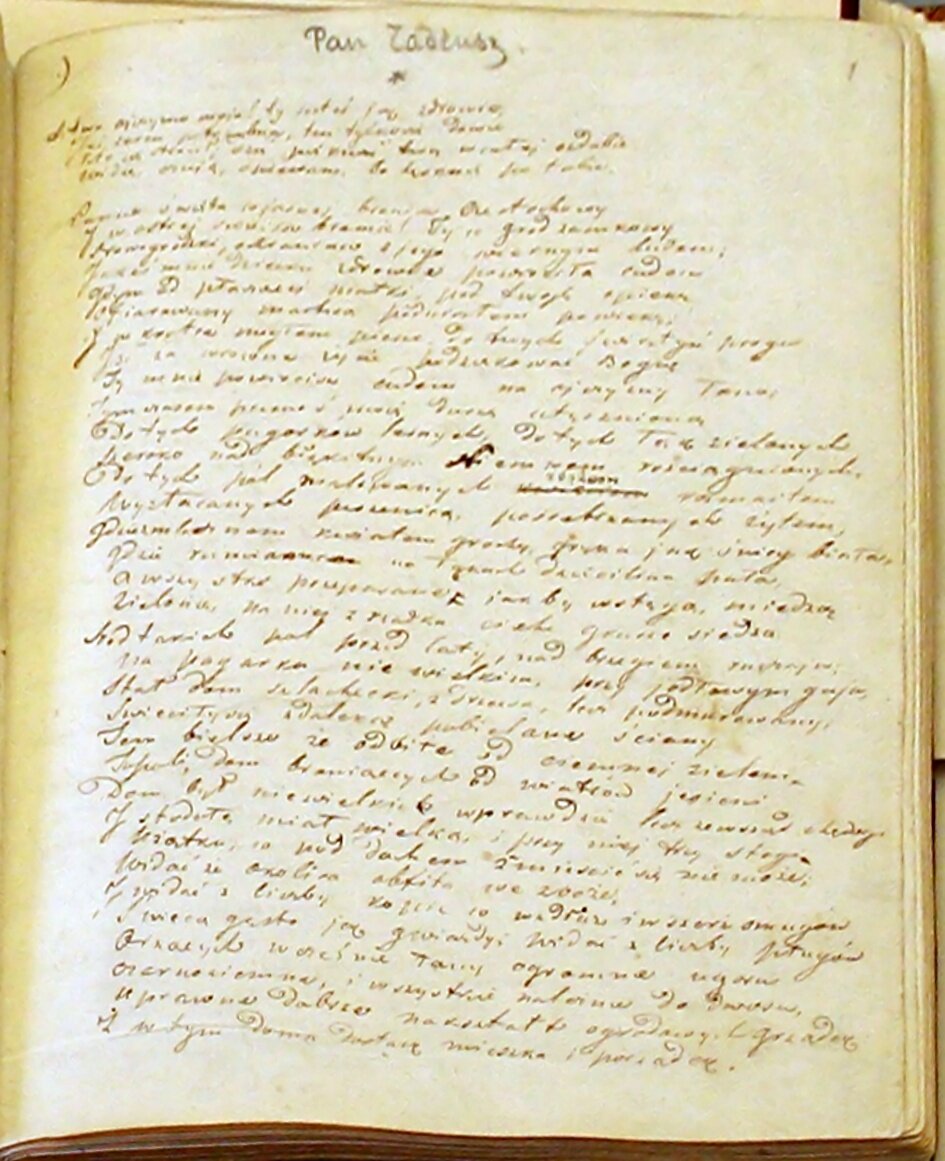 Pan Tadeusz.
1
*
Litwo ojczyzno moja! ty jesteś jak zdrowie
ten tylko się dowie
Kto cię stracił, dziś piękność twą w całej ozdobie
Widzę, śpiewam, bo tęsknię po tobie.
Panno święta co jasnej bronisz Częstochowy
I w ostrej świecisz bramie! Ty co gród zamkowy
Nowogródzki ochraniasz z jego wiernym ludem;
Jakeś mnie dziecko zdrowiu powróciła cudem
Gdym od płaczącej matki, pod twoję opiekę
Ofiarowany martwą podniosłem powiekę;
I zaraz mogłem pieszo, do twych świątyń progu
Iść za wrócone życie podziękować Bogu
Tak mnie powrócisz cudem na ojczyzny łono;
Tymczasem przenoś moją duszę utęsknioną
Do tych pagórków leśnych, do tych łąk zielonych
Szeroko nad błękitnym Niemnem rościągnionych.
Do tych pól malowanych zbożem rozmaitem
Wyzłacanych pszenicą, posrebrzanych żytem,
Gdzie bursztynowy świerzop, gryka jak śnieg biała,
Gdzie rumieńcem dzięcielina pała,
A wszystko przepasane jakby wstęgą, miedzą
Zieloną, na niej z rzadka ciche grusze siedzą
Śród takich pól przed laty, nad brzegiem ruczaju,
Na pagórku niewielkim, przy jodłowym gaju,
Stał dom szlachecki, z drzewa, lecz podmurowany;
Świeciły się zdaleka pobielane ściany
Tem bielsze że odbite od ciemnej zieleni
Topoli, dom broniących od wiatrów jesieni
Dom był niewielki wprawdzie lecz zewsząd chędogi
I stodołę miał wielką, i przy niej trzy stogi
Użątku, co pod dachem zmieścić się nie może;
Widać że okolica obfita we zboże,
I widać z liczby kopic co wzdłuż i wszerz smugów
Świecą gęsto jak gwiazdy; widać z liczby pługów
Orzących wcześnie łany ogromne ugoru
Czarnoziemne, i wszystkie należne do dworu,
Uprawne dobrze nakształt ogrodowych grządek
Że w tym domu dostatek mieszka i porządek.